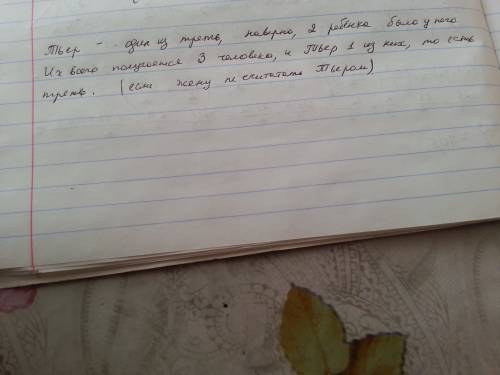 Тьер - один из треть, наверно, 2 ребёнка было у него
Их всего получается 3 человека, и Тьер 1 из них, то есть
треть. (если жену не считать Тьером)